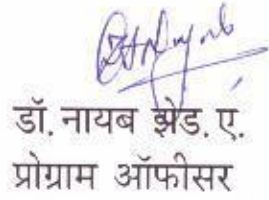 डॉ. नायब झेड. ए.
प्रोग्राम ऑफीसर